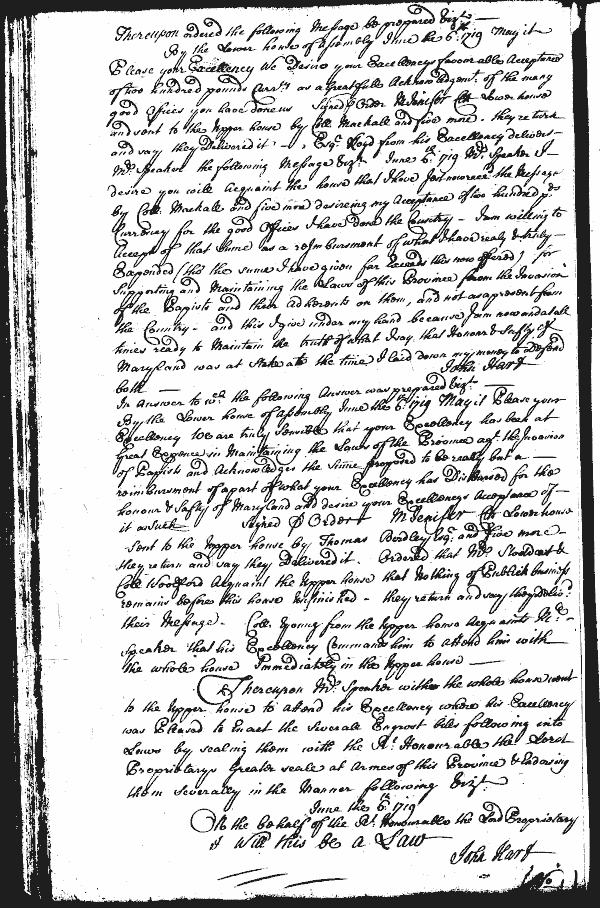 Thereupon ordered the following Message be prepared Vizt.
By the Lower house of assembly June the 6th. 1719 May it
Please your Excellency We Desire your Excellencys favourable Acceptance
of two hundred pounds Curr.y as a Greatfull Acknowledgemt. of the many
good offices you have done us Signed P Order M Jenifer Clk Lower house
and sent to the Upper house by Coll. Mackall and five more. they return
and say they Delivered it - Esq.r Lloyd from his Excellency delivers
Mr. Speaker the following Message Vizt. June 6th. 1719 Mr. Speaker I
desire you will Acquaint the house that I have Just now recd. the Message
by Coll. Mackall and five more desireing my Acceptance of two hundred pds.
Currency for the good offices I have done the Country - I am willing to
Accept of that Sume as a reimbursment of what I have realy & truly
Expended (tho the sume I have given far Exceeds this now offered) for
Supporting and Maintaining the Laws of this Province from the Invasion
of the Papists and their Adherents on them, and not as a present from
the Country - and this I give under my hand because I am now and at all
times ready to Maintain the truth of what I say. that Honour & Safty of
Maryland was at Stake att the time I laid down my money to Defend
both - John Hart
In Answer to wch. the following Answer was prepared Vizt.
By the Lower house of assembly June the 6th. 1719 May it Please your
Excellency We are truly sensible that your Excellency has been at
Great Expence in Maintaining the Laws of the Province agt. the Invasion
of Papists and Acknowledges the Sume proposed to be really but a
reimbursment of a part of what your Excellency has Disbursed for the
honour & Safty of Maryland and desire your Excellencys Acceptance of
it as such Signed P Order M Jenifer Clk Lower house
Sent to the Upper house by Thomas Bordley Esq. and five more
they return and say they Delivered it. Ordered that Mr. Stoddart &
Coll Woodford Acquaint the Upper house that nothing of Publick business
remains before this house unfinished - they return and say they delivd.
their Message - Coll. Young from the Upper house Acquaints Mr.
Speaker that his Excellency Commands him to attend him with
the whole house Immediately in the Upper house
Thereupon Mr. Speaker with the whole house went
to the Upper house to attend his Excellency where his Excellency
was Pleased to Enact the Severall Engrost bills following into
Laws by sealing them with the Rt. Honourable the Lord
Proprietarys Greater seale at Armes of this Province & Endorsing
them severally in the Manner following Vizt.
June the 6th. 1719
On the behalf of the Rt. Honourable the Lord Proprietary
I Will this be a Law
John Hart